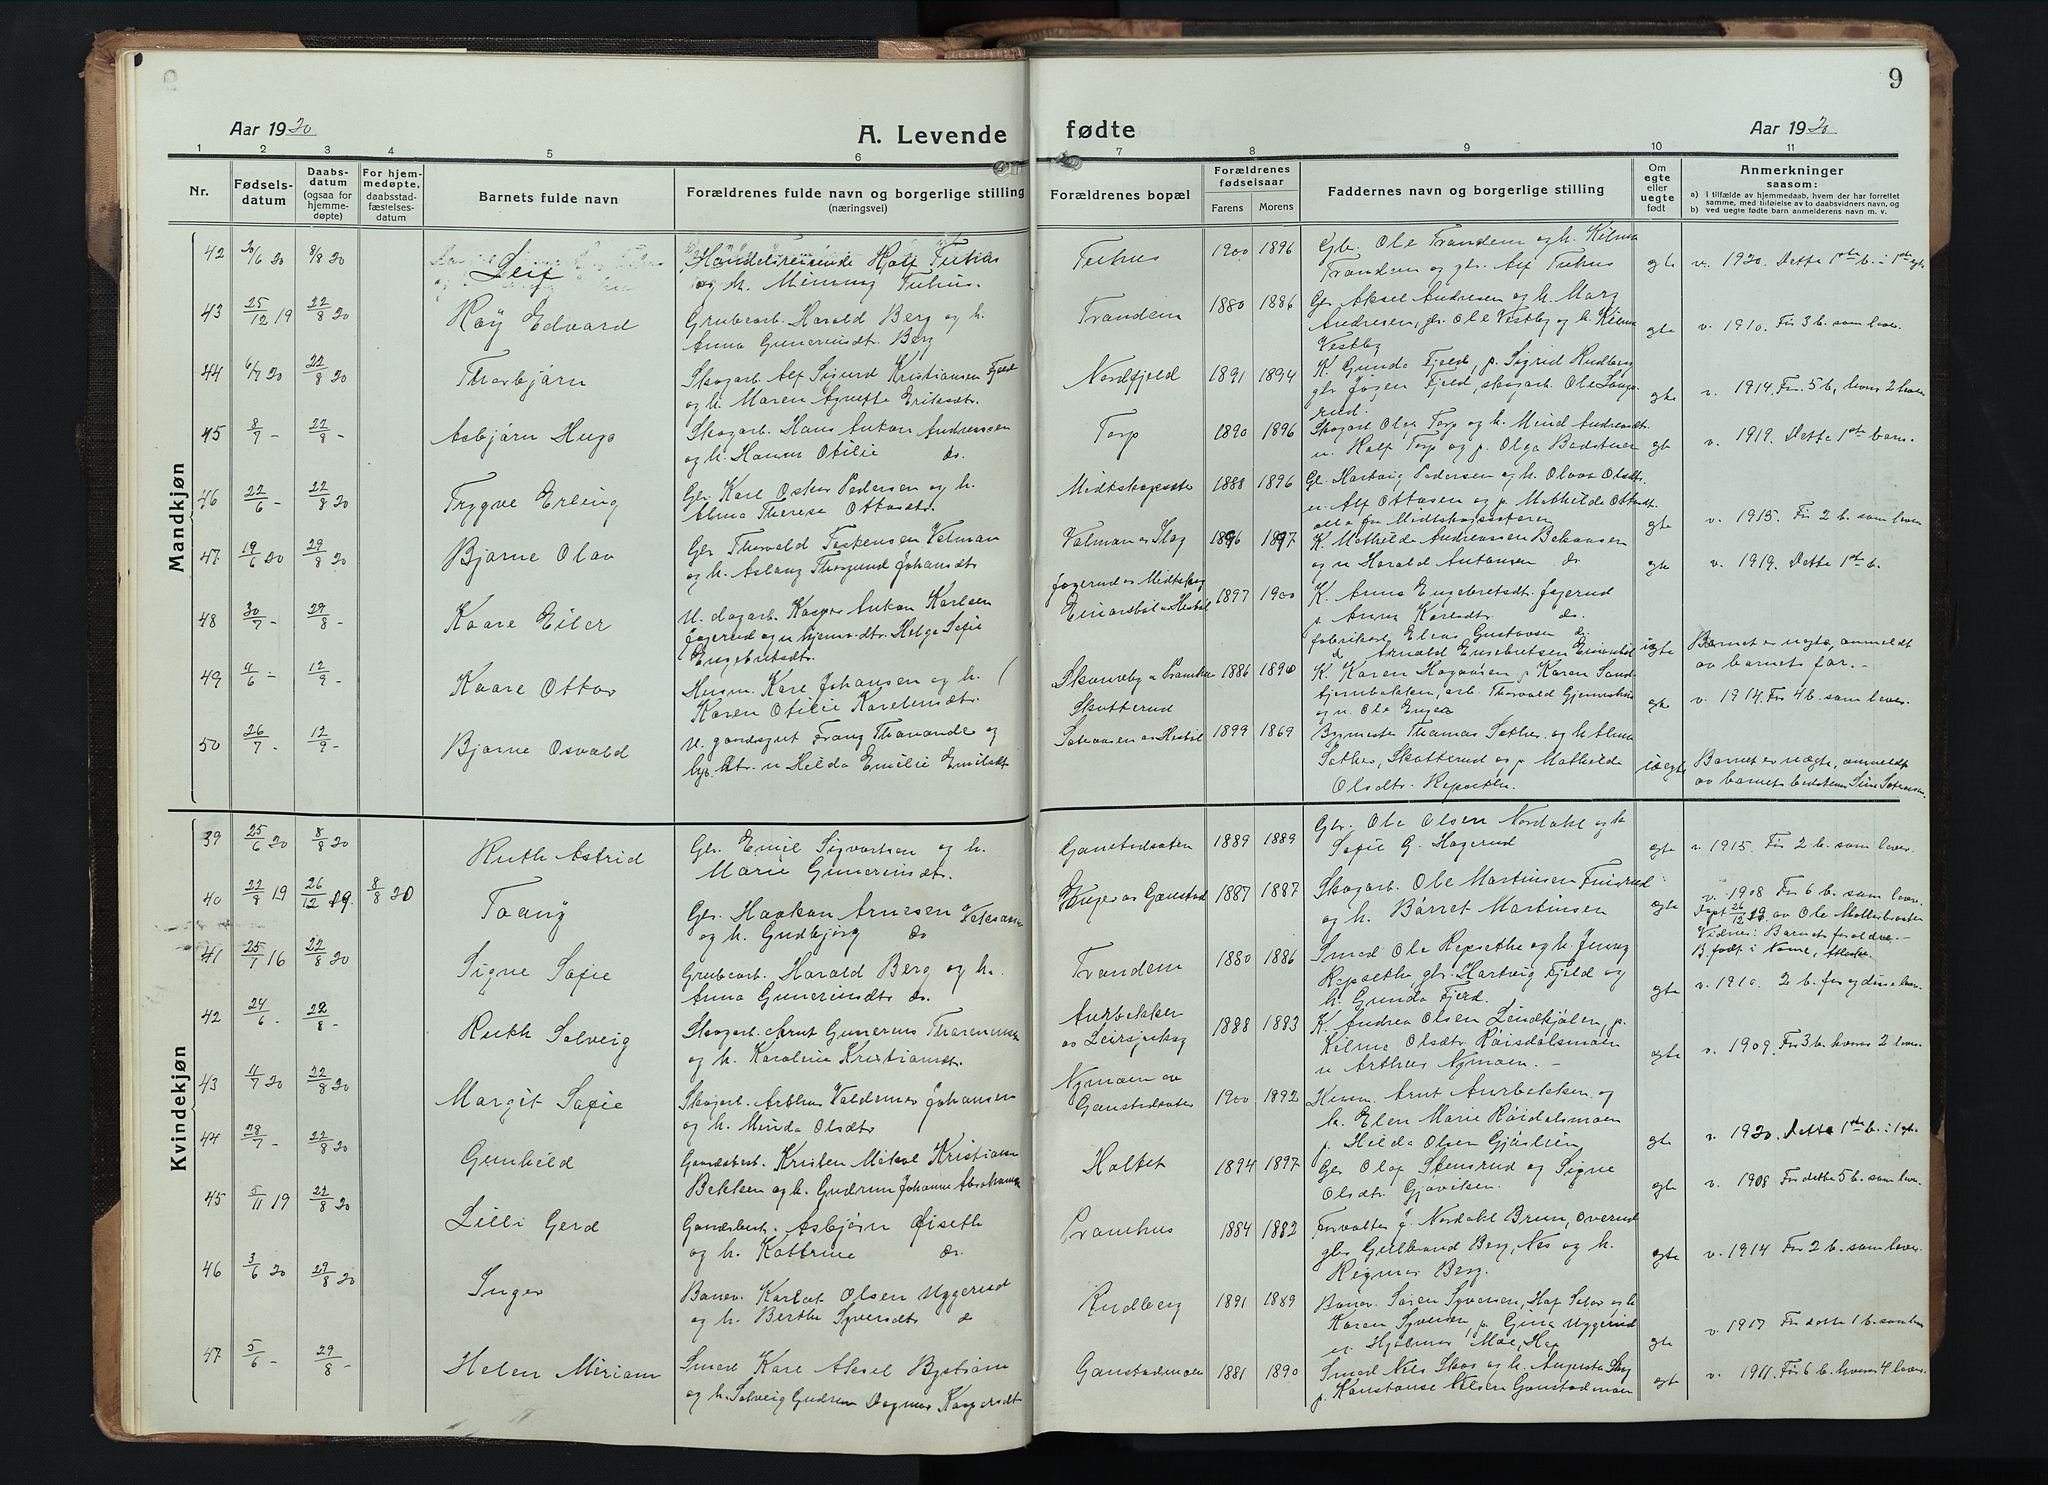 9
Aar 1920
A. Levende fødte
Aar 1920
1 2 3 4 5 6 7 8 9 10 11
Nr.
Fødselsdatum
Daabsdatum (ogsaa for hjemmedøpte)
For hjemmedøpte, daabsstadfæstelsesdatum
Barnets fulde navn
Forældrenes fulde navn og borgerlige stilling (næringsvei)
Forældrenes bopæl
Forældrenes fødselsaar
Farens Morens
Faddernes navn og borgerlige stilling
Om egte eller uegte født
Anmerkninger saasom:
a) i tilfælde av hjemmedaab, hvem der har forrettet samme, med tilføielse av to daabsvidners navn, og
b) ved uegte fødte barn anmelderens navn m. v.
Mandkjøn
42 30/6 20 8/8 20 Leif
Handelsreisende Rolf Tuhus
og h. Minna Tuhus.
Tuhus 1900 1896
Gbr. Ole Trandem og h.
Trandem og gbr. Alf Tuhus
egte v. 1920. Dette 1ste b. i 1ste egt.
43 25/12 19 22/8 20 Roy Edvard
Grubearb. Harald Berg og h.
Anna Guneriusdt. Berg
Trandem 1880 1886
Gbr Aksel Andresen og h. Marg
Andresen, gbr. Ole Vestby og h.
Vestby
egte v. 1910. Før 3 b. som lever.
44 6/7 20 22/8 20 Thorbjørn
Skogarb. Alf Sigurd Kristiansen Fjeld
og h. Maren Agnette Eriksdt.
Nordfjeld 1891 1894
K. Gunda Fjeld, p. Sigrid Rudberg
gbr Jørgen Fjeld, skogarb. Ole
rud.
egte v. 1914. Før 5 b, hvorav 2 lever
45 8/7 - 22/8 - Asbjørn Hugo
Skogarb. Hans Anton Andreassen
og h. Hanna Otilie do.
Torp 1890 1896
Skogarb Olav Torp og h.
u. Rolf Torp og p. Olga
egte v. 1919. Dette 1ste barn.
46 22/6 - 22/8 20 Trygve Erling
Gbr. Karl Oskar Pedersen og h.
Alma Therese Ottosdt.
Midtskogsæter 1888 1896
Gbr. Hartvig Pedersen og h. Olava Olsdt.
u. Alf Ottosen og p. Mathilde Ottosdt.
alle fra Midtskogsæteren
egte v. 1915. Før 2 b. som lever
47 19/6 20 29/8 20 Bjarne Olav
Gbr Thorvald Velman
og h. Aslaug Johansdt.
1896 1897
K. Mathilde Andreassen
og u Harald Antonsen do
egte v. 1919. Dette 1ste b.
48 30/7 - 29/8 - Kaare Eiler
U. dagarb. Kasper Anton Karlsen
Jøgerud og u hjemv. dtr. Helga Sofie
Engebretsdt.
Jøgerud av Midtskog
1897 1900
K. Anna Engebretsdt. Jøgerud
p. Anna Karlsdtr. do.
fabrikarb. Elias Gustavsen do.
Arnold Engebretsen
uegte Barnet er uegte, anmeldt
av barnets far. -
49 4/6 - 12/9 - Kaare Ottar
Husm. Karl Johansen og h.
Karen Otilie
Skotterud
1886 1890
K. Karen Haganæs p Karen Sand
arb. Thorvald
og u. Ole Enger
egte v. 1914. Før 4 b. som lever.
50 26/7 - 12/9 - Bjarne Osvald
U. gaardsgut Franz
og u Hilda Emilie Emilsdt
1899 1869
Bygmester Thomas Sæther og h Alma
Sæther, Skotterud og p. Mathilde
Olsdtr. Repsæther.
uegte Barnet er uegte, anmeldt
av barnets bedstemor
Kvindekjøn
39 25/6 20 8/8 20 Ruth Astrid
Gbr. Emil Sigvartsen og h.
Marie Guneriusdt.
Ganstadsæter 1889 1889
Gbr. Ole Olsen Nordahl og h
Sofie G. Hagerud
egte v. 1915. Før 2 b. som lever.
40 22/8 19 26/12 19. 8/8 20 Taany
Gbr. Haakon Arnesen
og h. Gudbjørg do
Enger av Ganstad 1887 1887
Skogarb. Ole Martinsen
og h. Børret Martinsen
egte v. 1908 Før 6 b. som lever.
Døpt 26/12 19 av Ole
Vidner: Barnets foreldre. -
B. født i Nome, Alaska
41 25/7 16 22/8 20 Signe Sofie
Grubearb. Harald Berg og h.
Anna Guneriusdtr. do.
Trandem 1880 1886
Smed Ole Repsæther og h. Jenny
Repsæther gbr. Hartvig Fjeld og
h. Gunda Fjeld.
egte v. 1910. 2 b. før og disse lever.
42 24/6 - 22/8 - Ruth Solveig
Skogarb. Arnt Gunerius Thorensen
og h. Karoline Kristiansdt.
Aurbekken
1888 1883
K. Andrea Olsen p.
Olsdtr. Røisdalsmoen
u Arthur Nymoen. -
egte v. 1909. Før 3 b. hvorav 2 lever
43 4/7 20 22/8 20 Margit Sofie
Skogarb. Arthur Valdemar Johansen
og h. Minda Olsdtr.
Nymoen av
Ganstadsæter 1900 1892
Husm. Arnt Aurbekken og
h. Elen Marie Røidalsmoen
p. Hilda Olsen Gjøslien
egte v. 1920. Dette 1ste b. i 1 egt.
44 28/7 - 22/8 20 Gunhild
Gaardsbest. Kristen Mikal Kristiansen
Bekken og h. Gudrun Johanne Abrahamsen
Holtet 1894 1897
Gbr Olaf Stensrud og Signe
Olsdtr. Gjøviken.
egte v. 1908 Før dette 5 b. som lever.
45 5/11 19 22/8 20 Lilli Gerd
Gaardsbest. Asbjørn Øiseth
og h. Kattrine do.
Pramhus 1884 1882
Forvalter J. Nordahl Bruun, Overud
gbr Gulbrand Berg, Nes og h.
Ragna Berg.
egte v. 1914 Før 2 b. som lever.
46 3/6 20 29/8 20 Inger
Banev. Karlot Olsen Uggerud
og h. Berthe Syversdt. do
Rudberg 1891 1889
Banev. Søren Syversen,
Karen Syversen, p. Gina Uggerud
u. Hjalmar Moe,
egte v. 1917 Før dette 1 b. som lever
47 5/6 - 29/8 - Helen Miriam
Smed Karl Aksel Bystrøm
og h. Solveig Gudrun Dagmar Kaspersdt
Ganstadmoen 1881 1890
Smed Nils Skog og h. Augusta Skog
p. Konstanse Nilsen Ganstadmoen
egte v. 1911. Før 6 b. hvorav 4 lever.